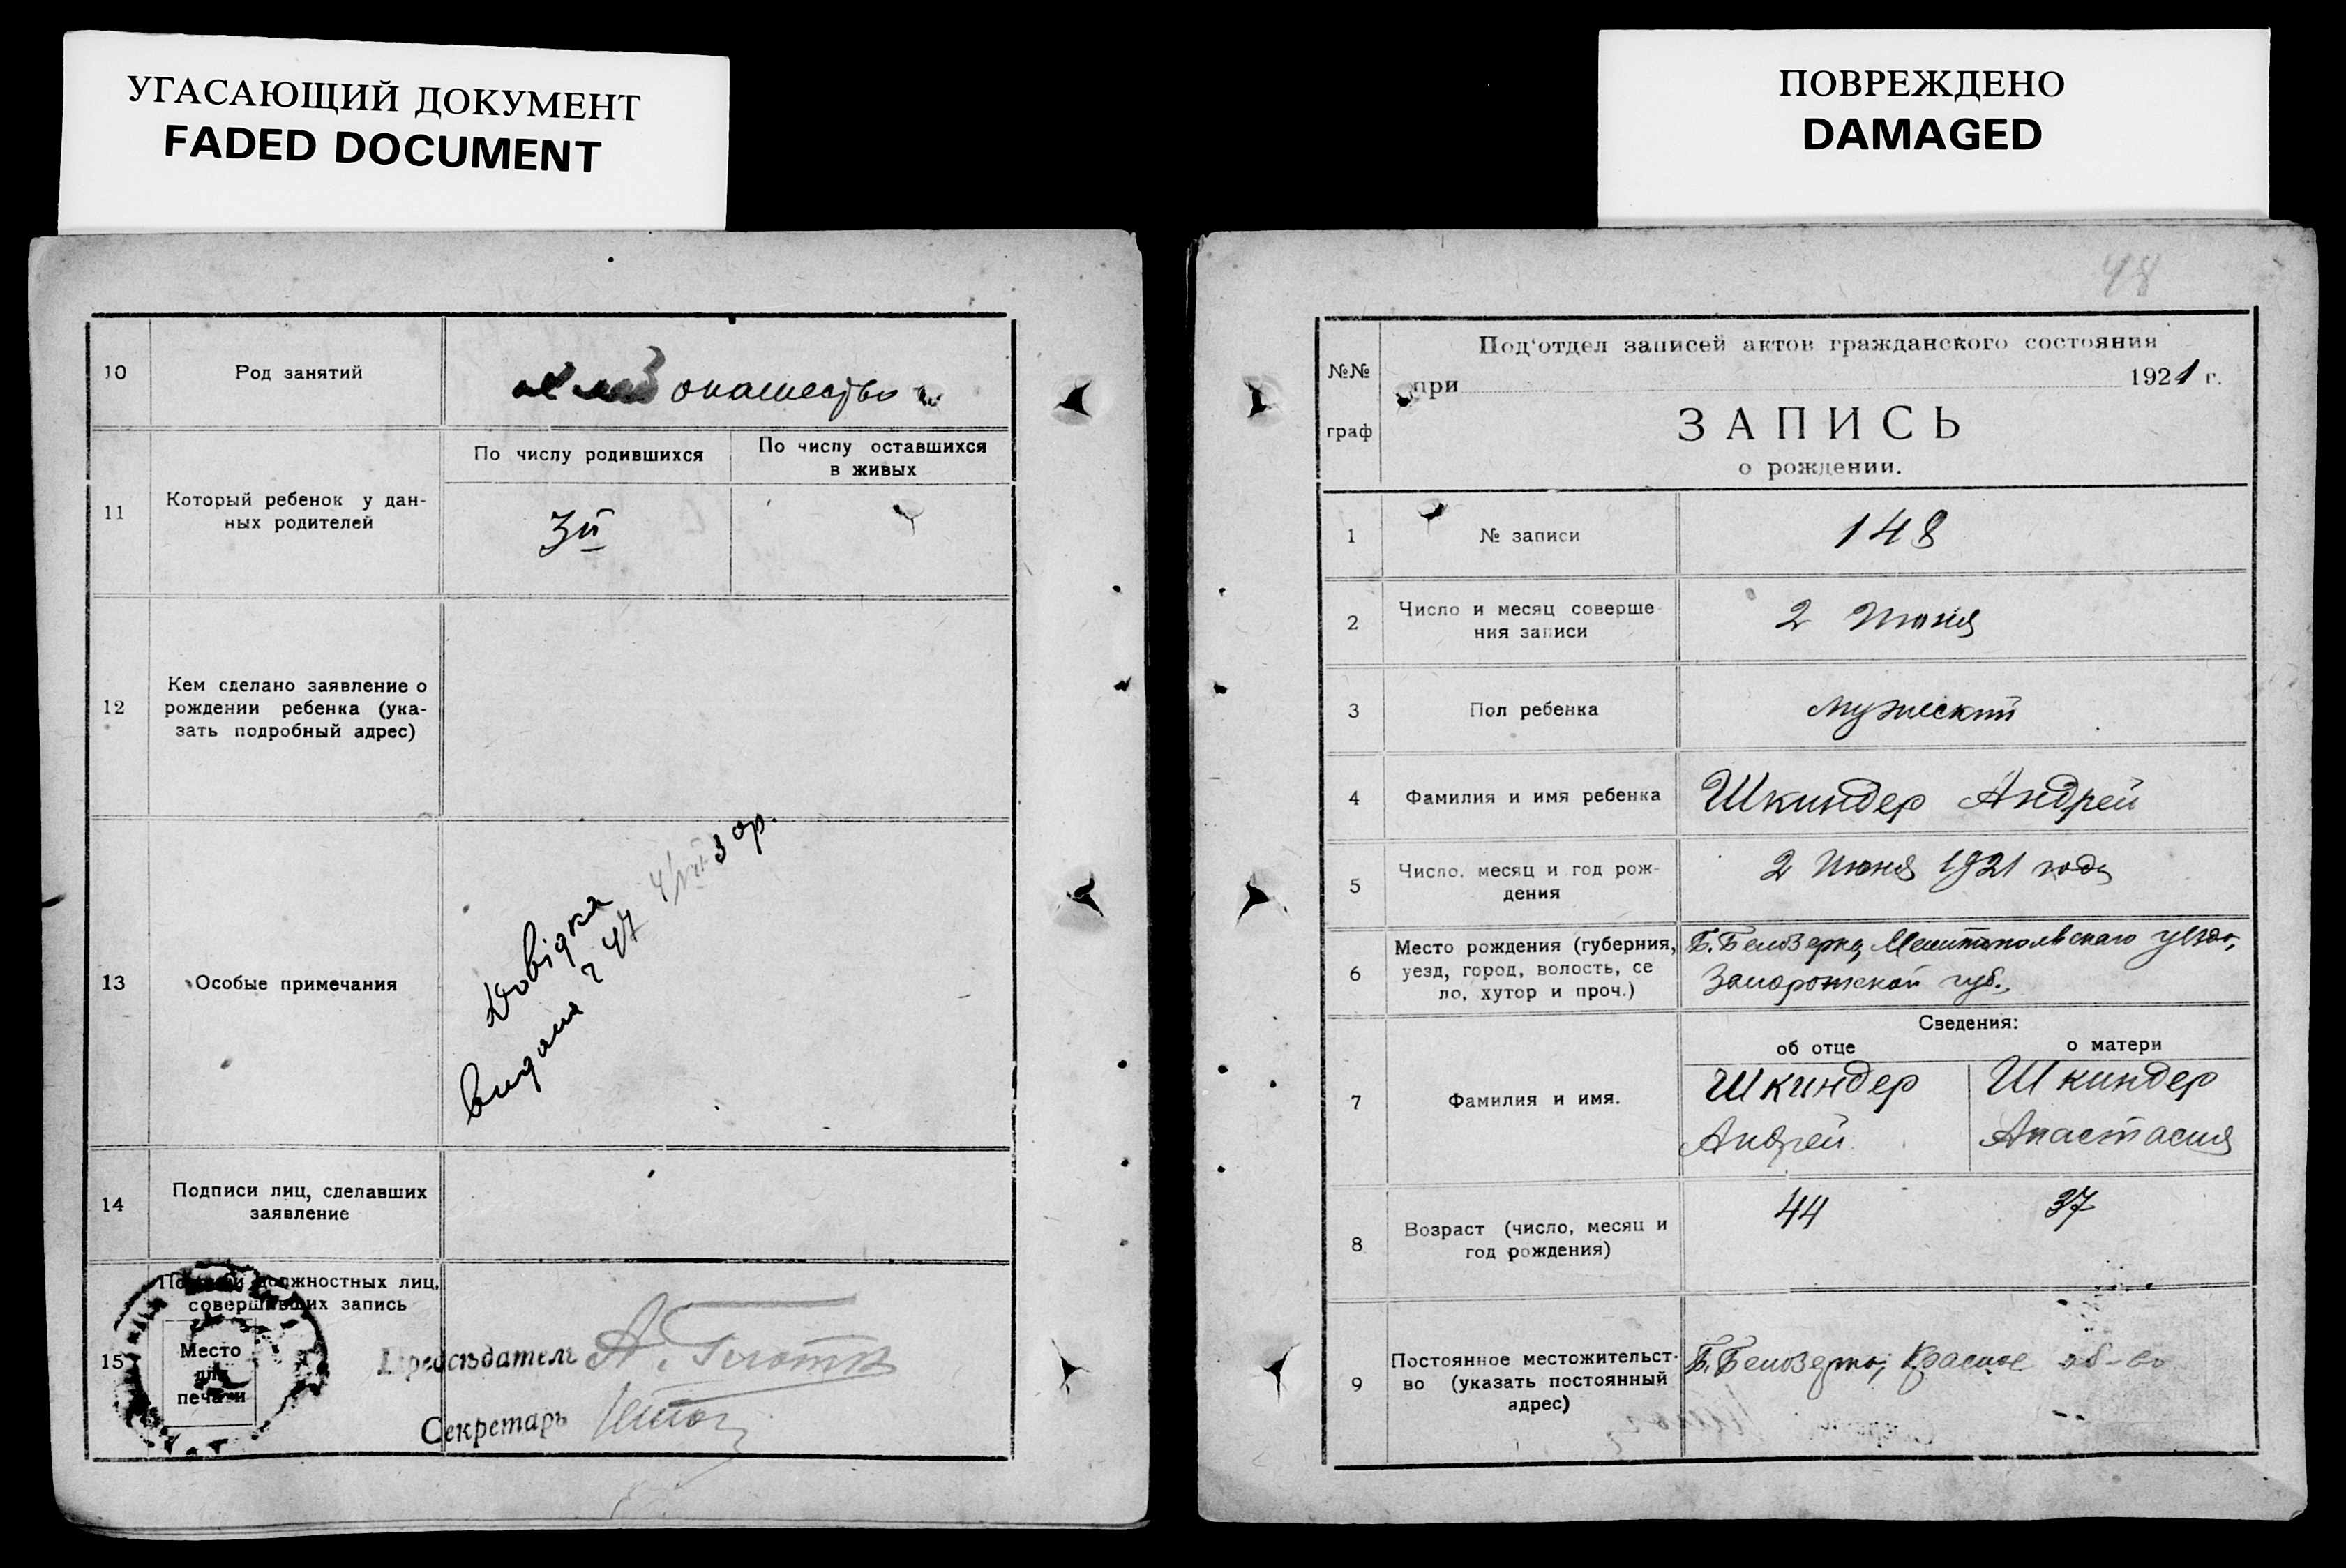 УГАСАЮЩИЙ ДОКУМЕНТ
FADED DOCUMENT
ПОВРЕЖДЕНО
DAMAGED
10
Род занятий
11
Который ребенок у дан-
ных родителей
По числу родившихся
По числу оставшихся
в живых
3й
12
Кем сделано заявление о
рождении ребенка (ука-
зать подробный адрес)
13
Особые примечания
Довідка
видана
47
14
Подписи лиц, сделавших
заявление
15
Подписи должностных лиц,
совершивших запись
Место
для
печати
Председатель
Секретарь
48
№№
граф
Под'отдел записей актов гражданского состояния
при 1921 г.
ЗАПИСЬ
о рождении.
1
№ записи
148
2
Число и месяц соверше-
ния записи
2 Июня
3
Пол ребенка
мужеский
4
Фамилия и имя ребенка
Шкиндер Андрей
5
Число, месяц и год рож-
дения
2 Июня 1921 года
6
Место рождения (губерния,
уезд, город, волость, се
ло, хутор и проч.)
Б. Белозерка, Мелитопольскаго уезда,
Запорожской губ.
Сведения:
об отце
о матери
7
Фамилия и имя.
Шкиндер
Андрей
Шкиндер
Анастасия
8
Возраст (число, месяц и
год рождения)
44
37
9
Постоянное местожительст-
во (указать постоянный
адрес)
Б. Белозерка, Красное об-во